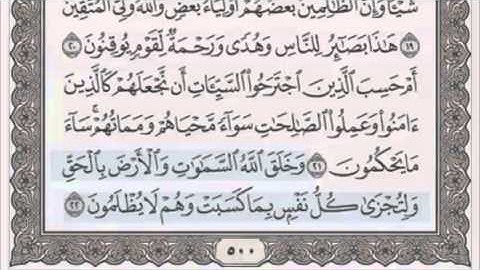 شَيْـًٔا وَإِنَّ ٱلظَّـٰلِمِينَ بَعْضُهُمْ أَوْلِيَآءُ بَعْضٍ وَٱللَّهُ وَلِىُّ ٱلْمُتَّقِينَ
١٩ هَـٰذَا بَصَـٰٓئِرُ لِلنَّاسِ وَهُدًى وَرَحْمَةٌ لِّقَوْمٍ يُوقِنُونَ ٢٠
أَمْ حَسِبَ ٱلَّذِينَ ٱجْتَرَحُوا۟ ٱلسَّيِّـَٔاتِ أَن نَّجْعَلَهُمْ كَٱلَّذِينَ
ءَامَنُوا۟ وَعَمِلُوا۟ ٱلصَّـٰلِحَـٰتِ سَوَآءً مَّحْيَاهُمْ وَمَمَاتُهُمْ ۚ سَآءَ
مَا يَحْكُمُونَ ٢١ وَخَلَقَ ٱللَّهُ ٱلسَّمَـٰوَٰتِ وَٱلْأَرْضَ بِٱلْحَقِّ
وَلِتُجْزَىٰ كُلُّ نَفْسٍۭ بِمَا كَسَبَتْ وَهُمْ لَا يُظْلَمُونَ ٢٢
٥٠٠